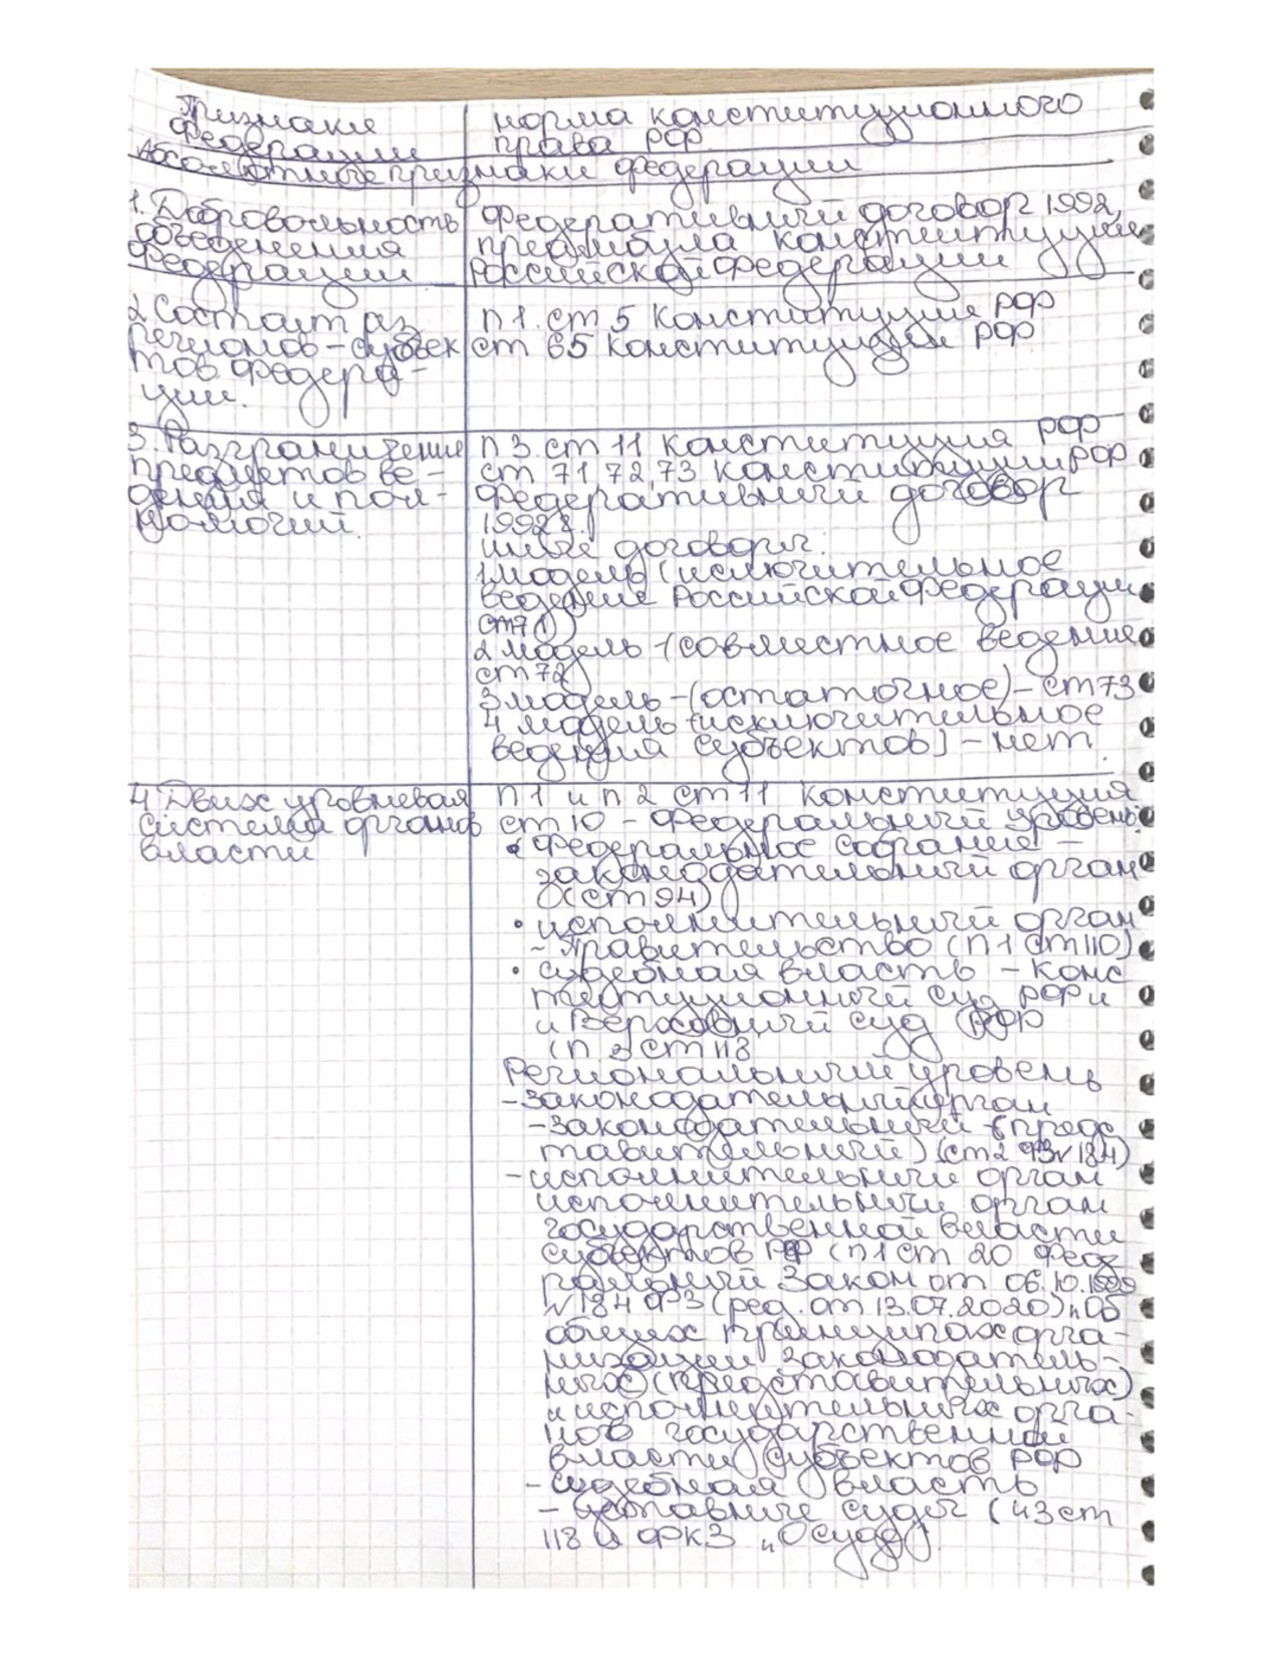 Признаки
федерации
норма конституционного
права РФ
Абсолютные признаки федерации
1. Добровольность
объединения
федерации
Федеративный договор 1992,
преамбула конституции
Российской Федерации
2 Состоит из
регионов – субъек
тов федера-
ции.
п 1. ст 5 Конституция РФ
ст 65 Конституции РФ
3. Разграничение
предметов ве-
дения и пол-
номочий.
п 3 ст 11 Конституция РФ
ст 71 72, 73 Конституции РФ
Федеративный договор
1992г.
иные договоры:
1 модель (исключительное
ведение Российской Федерации
ст 71)
2 модель -(совместное ведение
ст 72)
3 модель -(остаточное) – ст 73
4 модель (исключительное
ведения субъектов) – нет.
4 Двух уровневая
система органов
власти
п 1 и п 2 ст 11 Конституция
ст 10 – Федеральный уровень:
• Федеральное собрание –
законодательный орган
(ст 94)
• исполнительный орган
- Правительство (п 1 ст 110)
• судебная власть – конс
титуционный суд РФ и
и Верховный суд РФ
(п 3 ст 118
Региональный уровень
- Законодательный орган
- законодательный (предс
тавительный) (ст 2 ФЗ N 184)
- исполнительный орган
исполнительный орган
государственной власти
субъектов РФ (п 1 ст 20 Фед
ральный Закон от 06.10.1999
N 184 ФЗ (ред. от 13.07.2020) „Об
общих принципах орга-
низации законодатель-
ных (представительных)
и исполнительных орга-
нов государственной
власти субъектов РФ
- судебная власть
- уставные суды (ч 3 ст
118 и ФКЗ „О суд